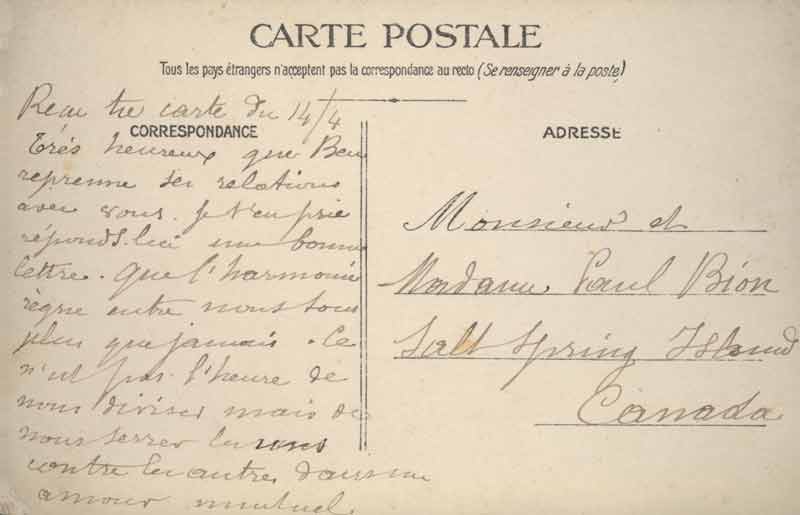 CARTE POSTALE
Tous les pays étrangers n'acceptent pas la correspondance au recto (Se renseigner à la poste)
Reçu tre carte du 14/4
CORRESPONDANCE
très heureux que Ben
reprenne ses relations
avec vous. Je t'en prie
réponds-lui une bonne
lettre. Que l'harmonie
règne entre nous tous
plus que jamais. Ce
n'est pas l'heure de
nous diviser mais de
nous serrer les uns
contre les autres dans un
amour mutuel
ADRESSE
Monsieur et
Madame Paul Bion
Salt Spring Island
Canada